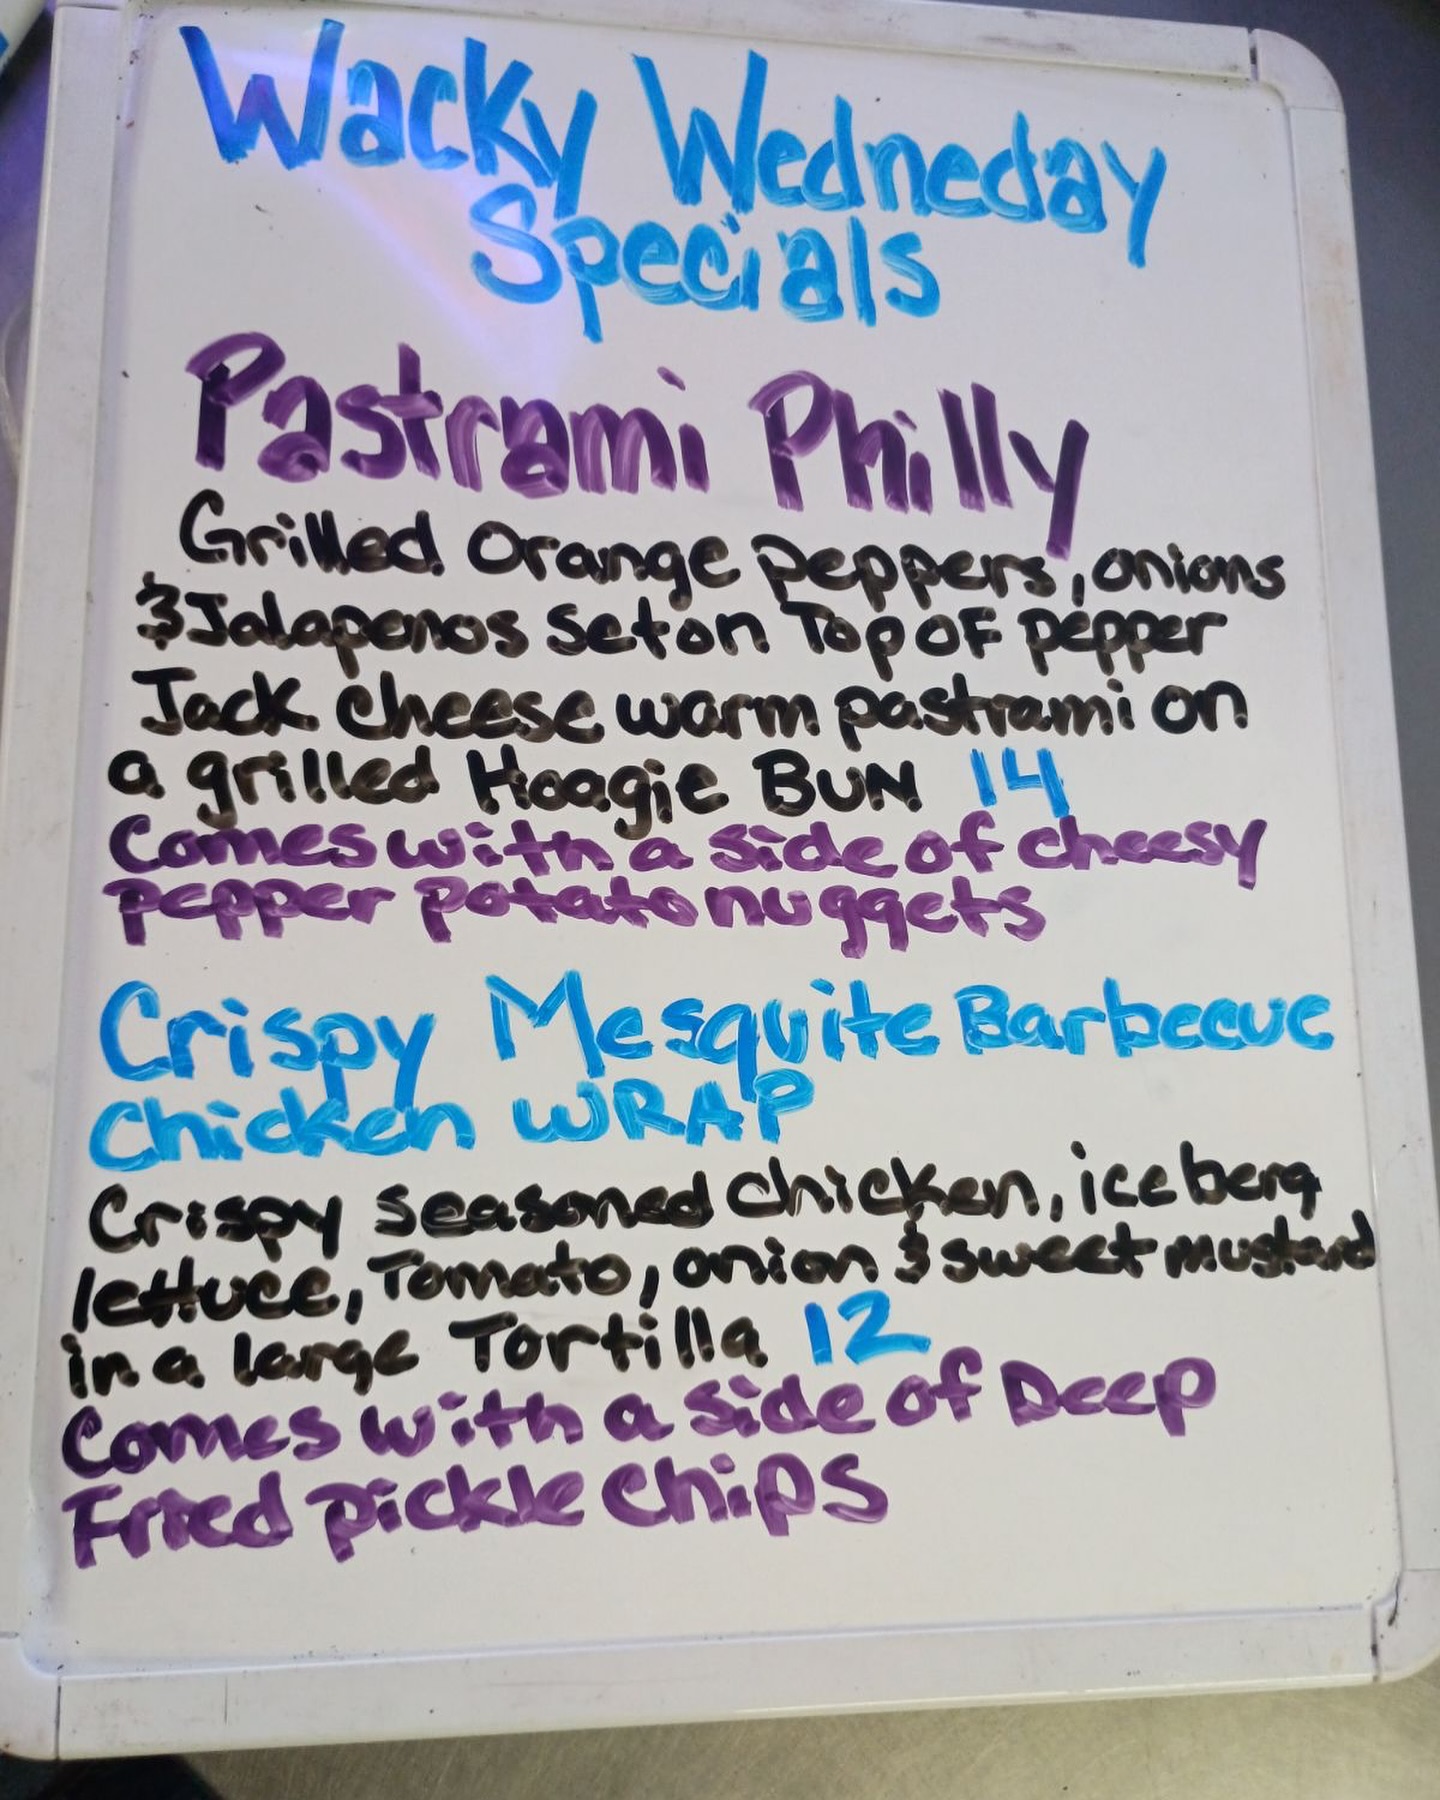 Wacky Wedneday
Specials
Pastrami Philly
Grilled Orange peppers, onions
& Jalapenos set on Top OF pepper
Jack cheese warm pastrami on
a grilled Hoagie BUN 14
Comes with a side of cheesy
pepper potato nuggets
Crispy Mesquite Barbecue
Chicken WRAP
Crispy seasoned chicken, iceberg
lettuce, Tomato, onion & sweet mustard
in a large Tortilla 12
Comes with a side of Deep
Fried pickle chips